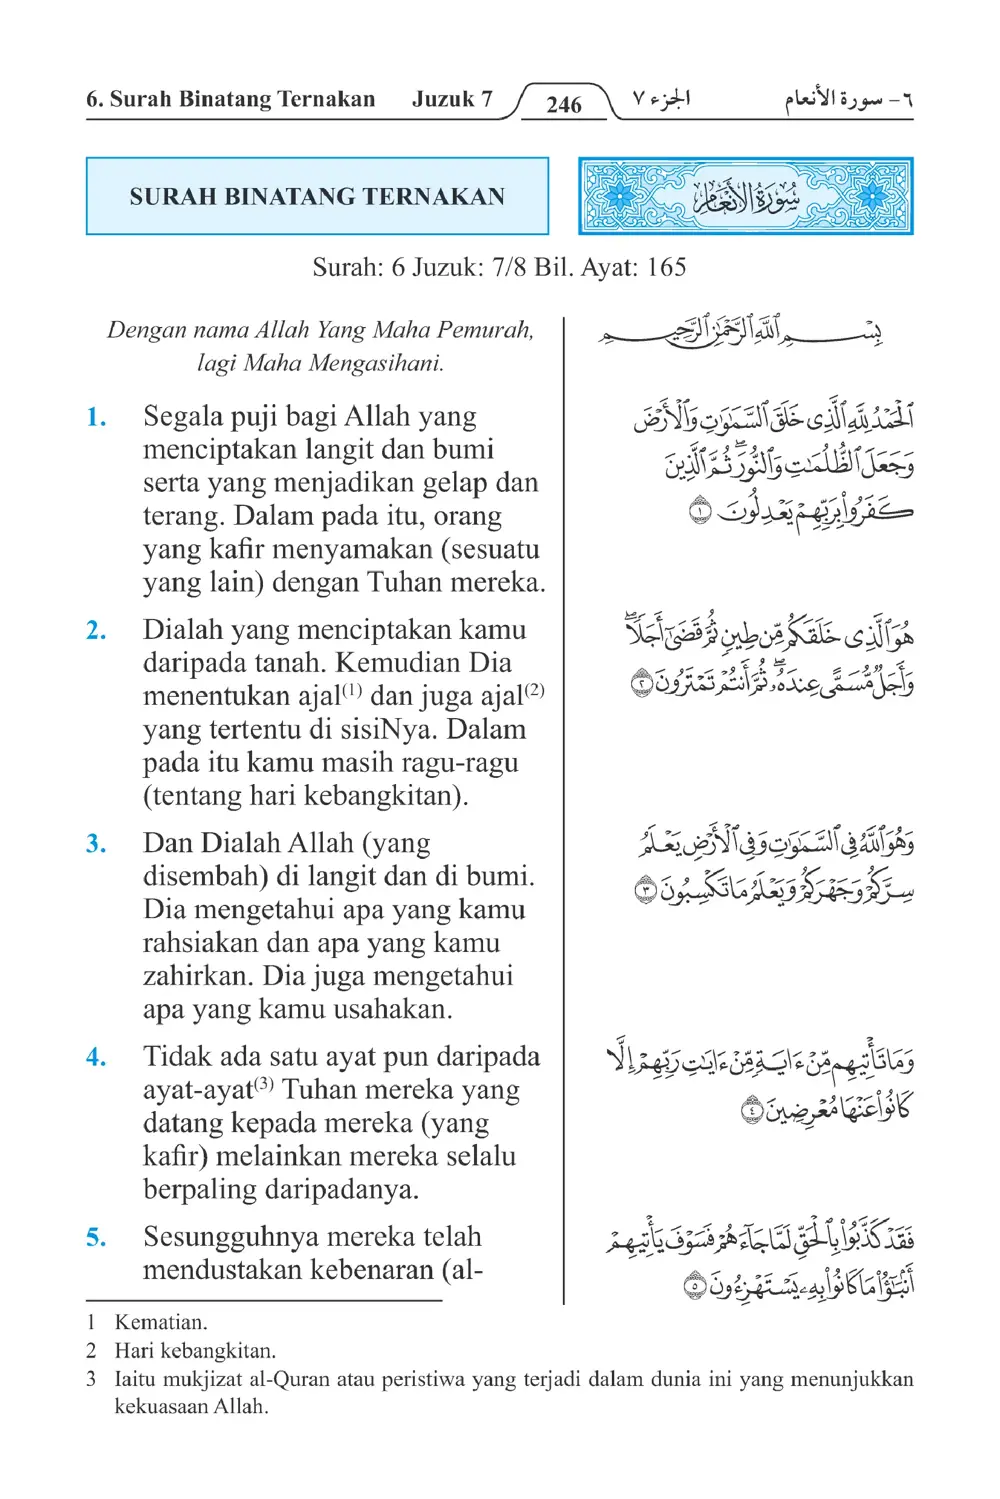 6. Surah Binatang Ternakan Juzuk 7 246 الجزء ٧ ٦- سورة الأنعام
SURAH BINATANG TERNAKAN
سُورَةُ الأَنْعَامِ
Surah: 6 Juzuk: 7/8 Bil. Ayat: 165
Dengan nama Allah Yang Maha Pemurah,
lagi Maha Mengasihani.
1. Segala puji bagi Allah yang
menciptakan langit dan bumi
serta yang menjadikan gelap dan
terang. Dalam pada itu, orang
yang kafir menyamakan (sesuatu
yang lain) dengan Tuhan mereka.
2. Dialah yang menciptakan kamu
daripada tanah. Kemudian Dia
menentukan ajal(1) dan juga ajal(2)
yang tertentu di sisiNya. Dalam
pada itu kamu masih ragu-ragu
(tentang hari kebangkitan).
3. Dan Dialah Allah (yang
disembah) di langit dan di bumi.
Dia mengetahui apa yang kamu
rahsiakan dan apa yang kamu
zahirkan. Dia juga mengetahui
apa yang kamu usahakan.
4. Tidak ada satu ayat pun daripada
ayat-ayat(3) Tuhan mereka yang
datang kepada mereka (yang
kafir) melainkan mereka selalu
berpaling daripadanya.
5. Sesungguhnya mereka telah
mendustakan kebenaran (al-
بِسْمِ ٱللَّهِ ٱلرَّحْمَٰنِ ٱلرَّحِيمِ
ٱلْحَمْدُ لِلَّهِ ٱلَّذِى خَلَقَ ٱلسَّمَٰوَٰتِ وَٱلْأَرْضَ
وَجَعَلَ ٱلظُّلُمَٰتِ وَٱلنُّورَ ۖ ثُمَّ ٱلَّذِينَ
كَفَرُوا۟ بِرَبِّهِمْ يَعْدِلُونَ ١
هُوَ ٱلَّذِى خَلَقَكُم مِّن طِينٍ ثُمَّ قَضَىٰٓ أَجَلًا ۖ
وَأَجَلٌ مُّسَمًّى عِندَهُۥ ۖ ثُمَّ أَنتُمْ تَمْتَرُونَ ٢
وَهُوَ ٱللَّهُ فِى ٱلسَّمَٰوَٰتِ وَفِى ٱلْأَرْضِ يَعْلَمُ
سِرَّكُمْ وَجَهْرَكُمْ وَيَعْلَمُ مَا تَكْسِبُونَ ٣
وَمَا تَأْتِيهِم مِّنْ ءَايَةٍ مِّنْ ءَايَٰتِ رَبِّهِمْ إِلَّا
كَانُوا۟ عَنْهَا مُعْرِضِينَ ٤
فَقَدْ كَذَّبُوا۟ بِٱلْحَقِّ لَمَّا جَآءَهُمْ فَسَوْفَ يَأْتِيهِمْ
أَنۢبَٰٓؤُا۟ مَا كَانُوا۟ بِهِۦ يَسْتَهْزِءُونَ ٥
1 Kematian.
2 Hari kebangkitan.
3 Iaitu mukjizat al-Quran atau peristiwa yang terjadi dalam dunia ini yang menunjukkan
kekuasaan Allah.